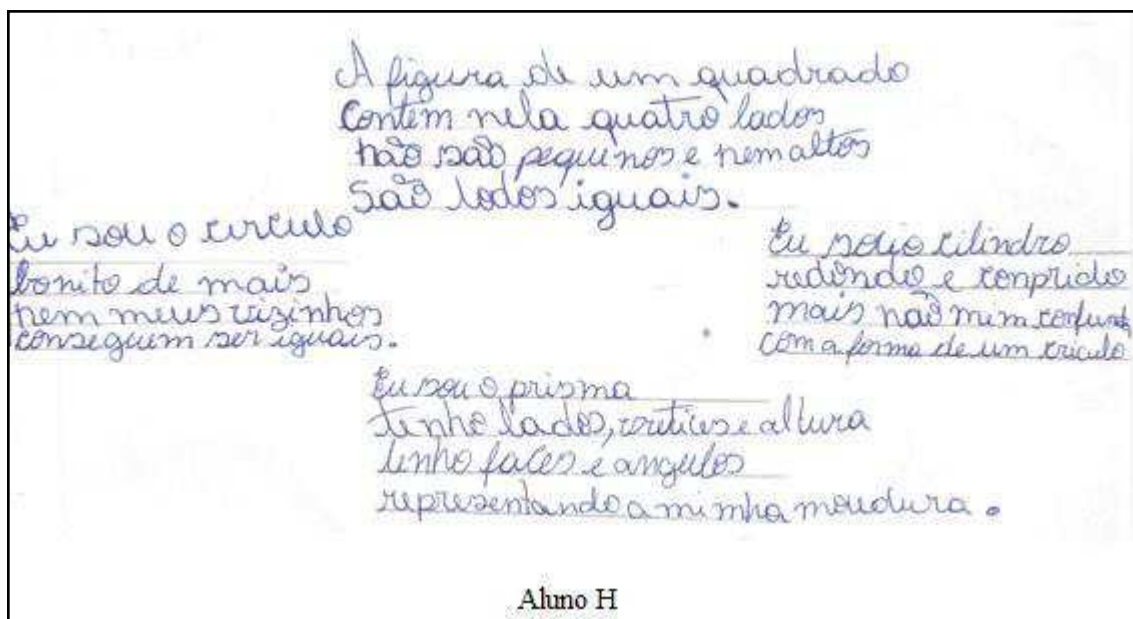 A figura de um quadrado
contem nela quatro lados
não são pequinos e nem altos
são todos iguais.
Eu sou o circulo
bonito de mais
nem meus vizinhos
conseguem ser iguais.
Eu sou o cilindro
redondo e conprido
mais não mim confunda
com a forma de um criculo
Eu sou o prisma
tenho lados, vertices e altura
tenho faces e angulos
representando a minha moudura.
Aluno H